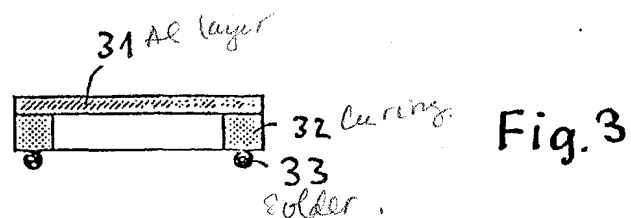 31 Al layer
32 Cu ring.
Fig. 3
33
Solder.